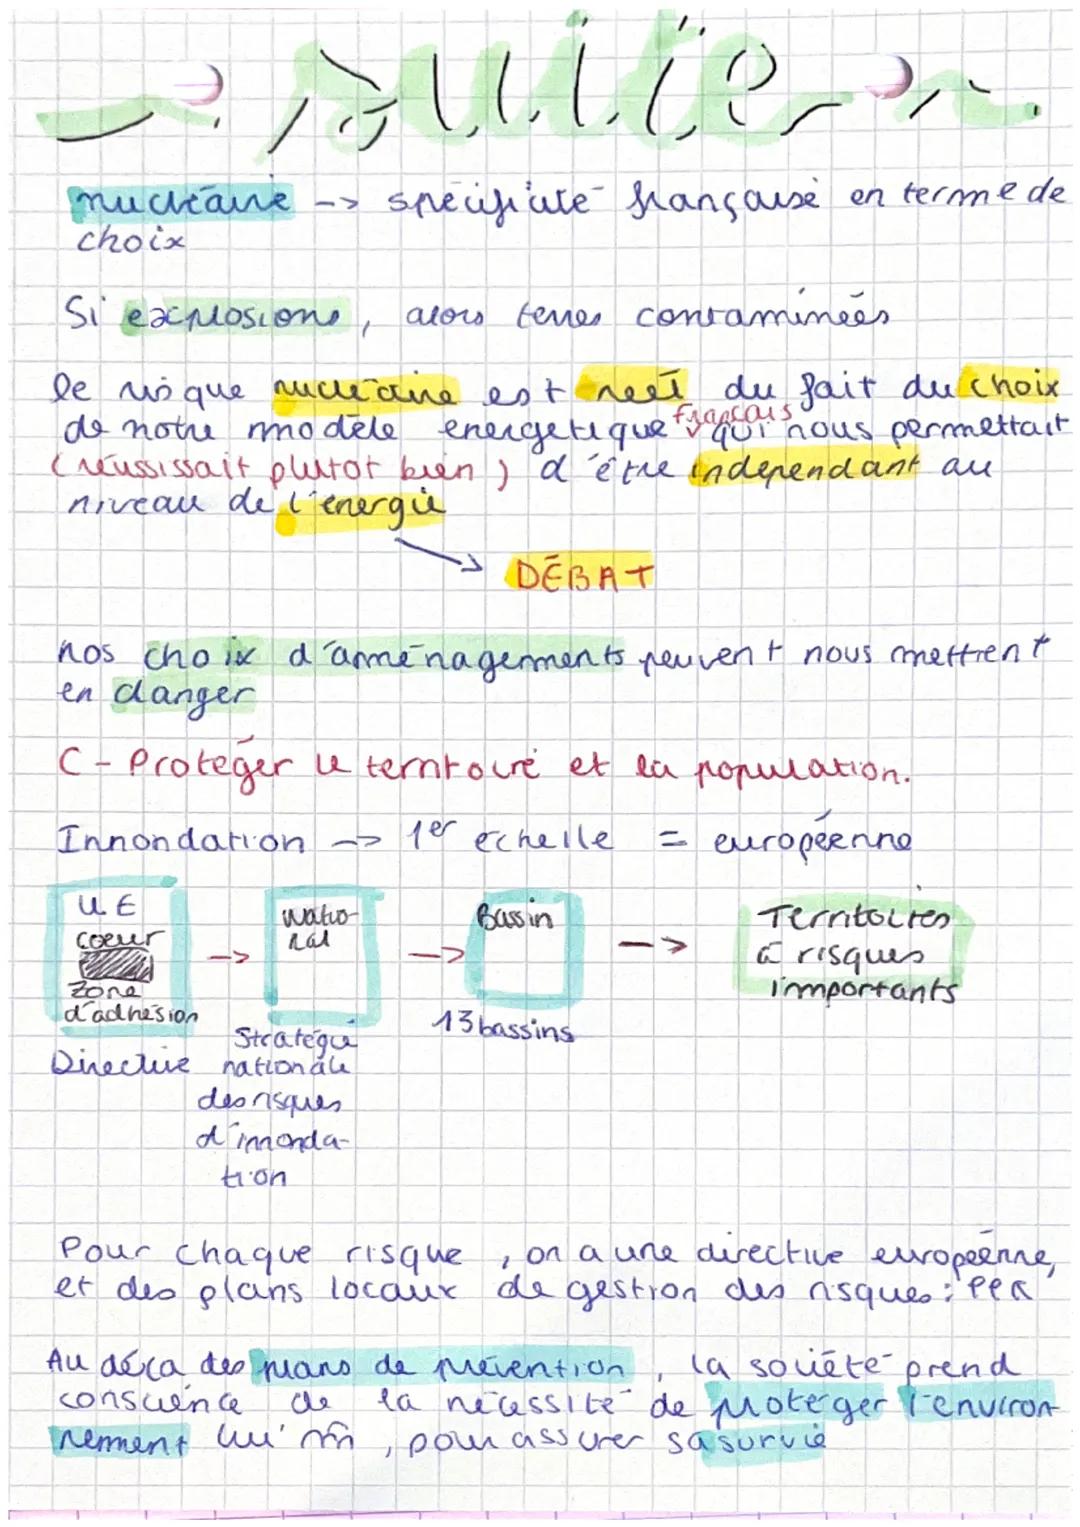 suite
nucléaire -> spécificité française en terme de
choix
Si explosions, alors terres contaminées
le risque nucléaire est réél du fait du choix
de notre modèle énergétique français qui nous permettait
(réussissait plutôt bien) d'être indépendant au
niveau de l'énergie
DÉBAT
nos choix d'aménagements peuvent nous mettrent
en danger
C - Protéger le territoire et la population.
Innondation -> 1er échelle = européenne
UE
coeur
zone
d'adhésion
Directive
->
Natio-
nal
Stratégie
nationale
des risques
d'innonda-
tion
->
Bassin
13 bassins
->
Territoires
à risques
importants
Pour chaque risque, on a une directive européenne,
et des plans locaux de gestion des risques : PPR
Au délà des plans de prévention, la société prend
conscience de la nécessité de protéger l'environ-
nement lui m̂, pour assurer sa survie